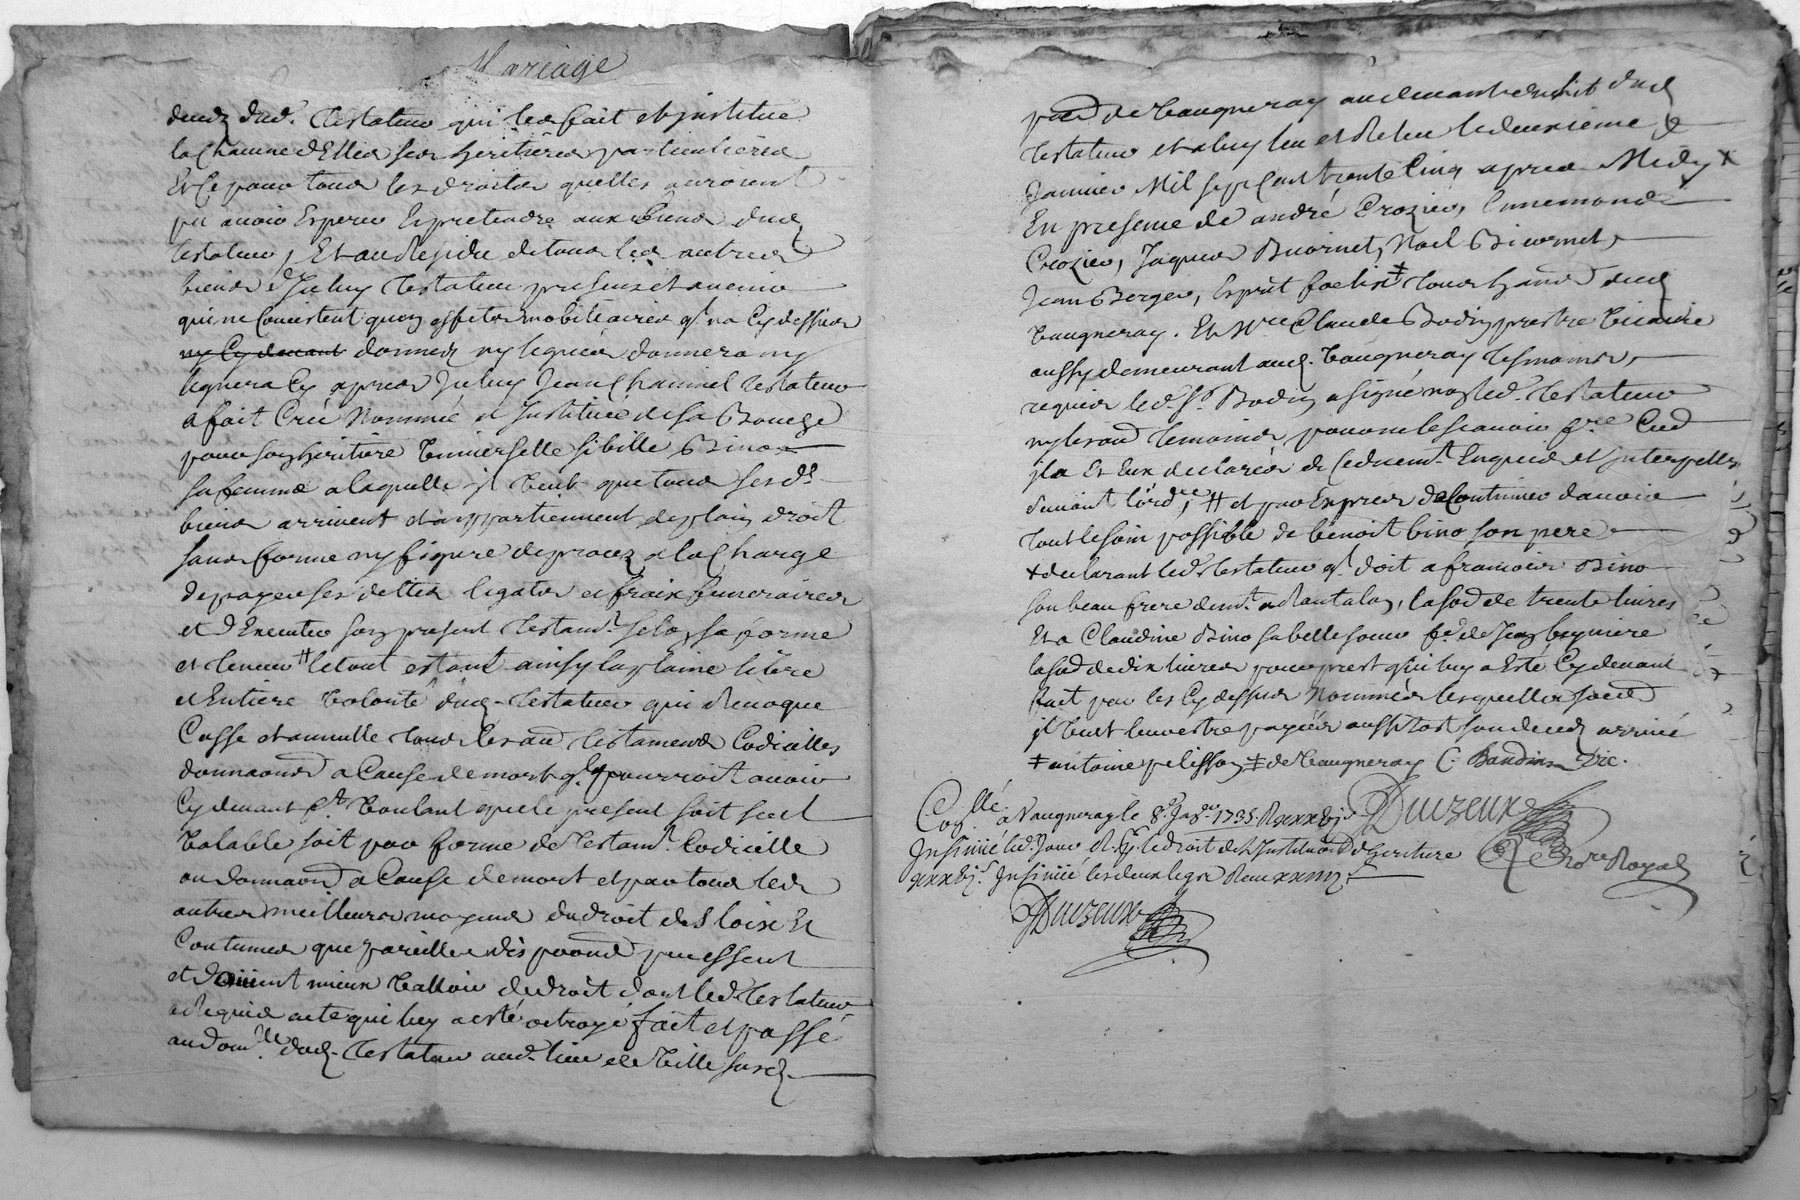 Mariage
dud. Testateur qui les fait et institue
la Chacune d'Elles ses heritieres particulieres
Et ce pour tous les droits quelles auroient
pu avoir Esperer Et pretendre aux biens dud.
testateur, Et au Residu de tous les autres
biens d'Iceluy testateur presens et avenir
qui ne Consistent quen effets mobiliaires qu'il na Cy dessus
ny Cy devant donnez ny leguez donnera ny
leguera Cy apres Iceluy Jean Chauinel testateur
a fait Créé Nommée et Institué de sa Bouche
pour son heritiere Universelle sibille Bino
sa femme a laquelle il Veut que tous ses ds
biens arrivent et appartiennent de plain droit
sans forme ny figure de procez a la Charge
de payer ses dettes legats et fraix funeraires
et d'Executer son present testamt. selon sa forme
et teneur # le tout estant ainsy la plaine libre
et Entiere Volonté dud. Testateur qui Revoque
Casse et annulle tous les aud. testamens Codicilles
donnaons a Cause de mort qu'il pourroit avoir
Cy devant fts Voulant que le present soit seul
Valable soit par forme de Testamt. Codicille
ou donnaon a Cause de mort et par tous les
autres meilleurs moyens du droit des loix Et
Coutumes que pareilles dispoons puissent
et doivent mieux Valloir de droit dont led. Testateur
a Requis acte qui luy a esté octroyé fait et passé
au domlle. dud. Testateur aud. lieu de
de Vaugneray au devant du lit dud.
testateur et a luy leu et Releu le deuxieme
Janvier Mil sept Cent trente Cinq apres Midy x
En presence de andré Crozier, Ennemond
Crozier, Jaques Buornet, Noel Biornet,
Jean Berger, Esprit foelix ‡ tous hans dud.
Vaugneray. Et Mre Claude Bodin prestre Vicaire
aussy demeurant aud. Vaugneray tesmoins,
requis led. Sr. Bodin a signé non led. Testateur
ny les aud. temoins pour ne le scavoir fre Com
Ils Et Eux declarés de ce duemt. Enquis et Interpellez
suivant l'ordce, # et par Expres de Continuer d'avoir
tout le soin possible de benoit bino son pere
x declarant led. testateur qu'il doit a francois Bino
son beau frere demt. a la sod de trente livres
Et a Claudine Bino sa belle soeur fe. de Jean
la sod de dix livres pour prest qui luy a Esté Cy devant
fait par les Cy dessus Nommés lesquelles soes
il Veut leur estre payées aussitost son decez arrivé
‡ antoine pelisson, ‡ de Vaugneray C. Baudin Vic.
Conllé. a Vaugneray le 8e Janer. 1735. R
Insinué led. Jour R. le droit de l'Instituaon d'heritiere
Insinué les deux legs R
Duczeux
Ne Nore Royal
Duczeux